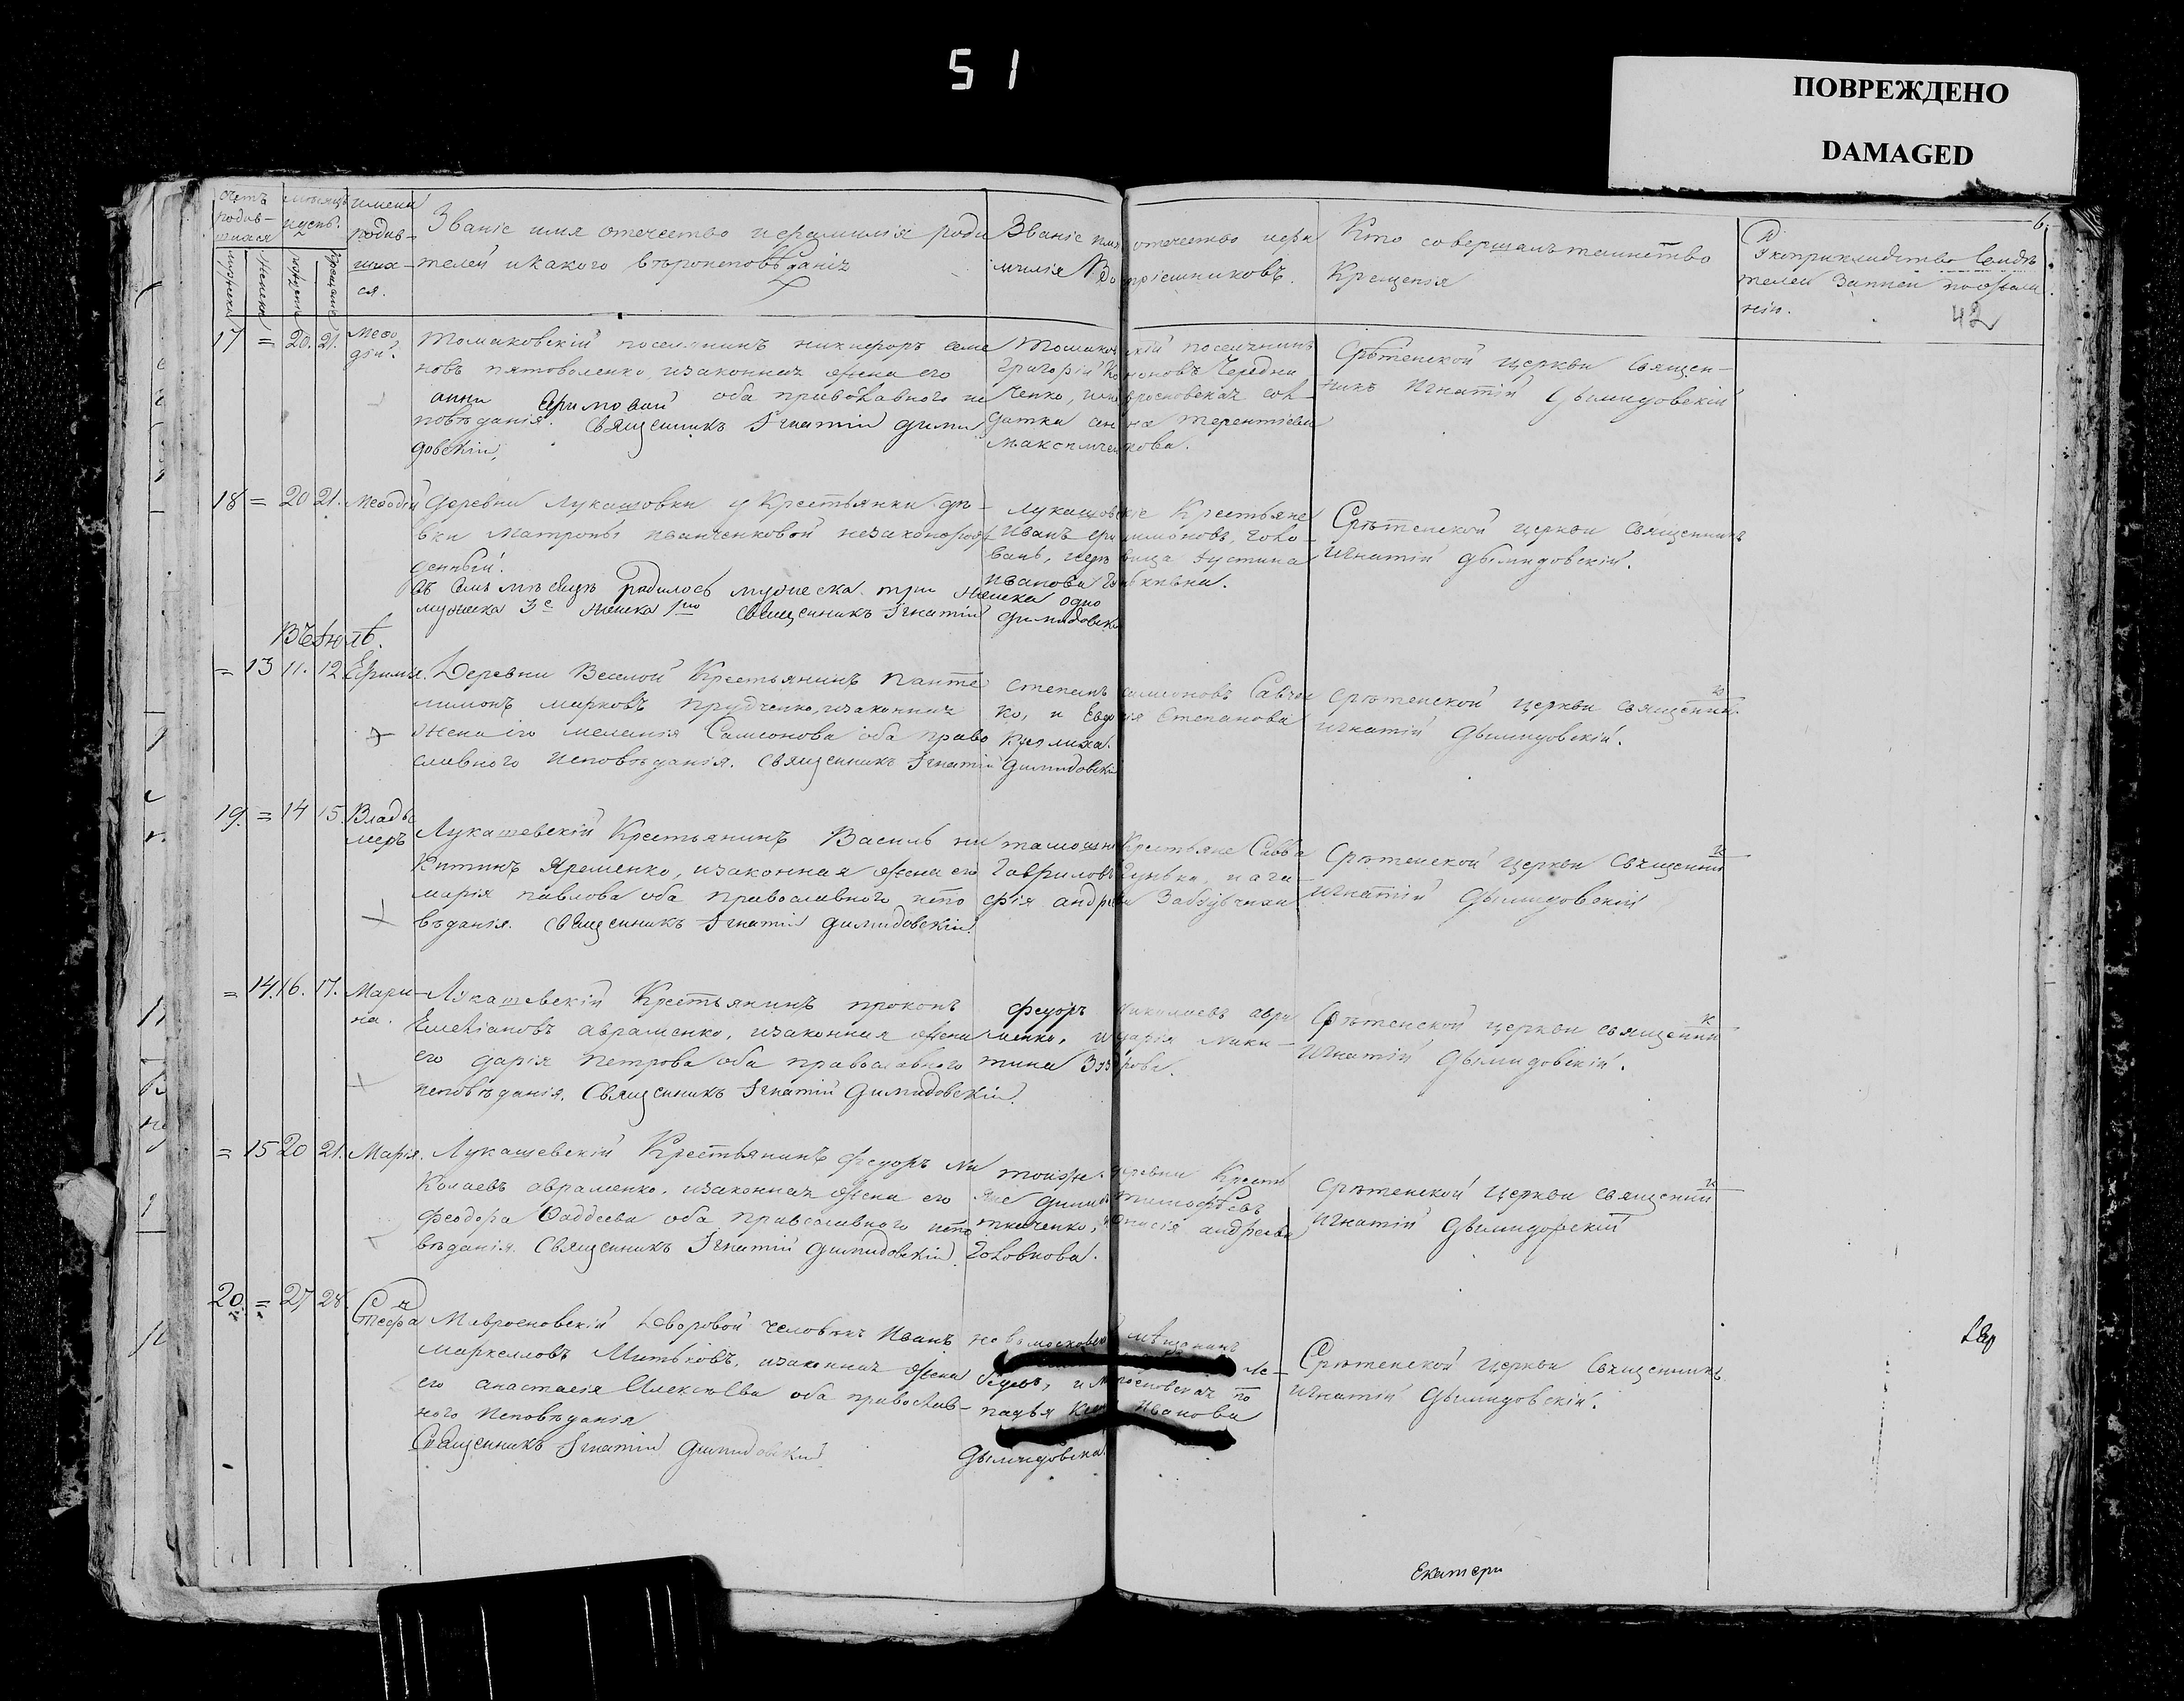 51
ПОВРЕЖДЕНО
DAMAGED
6.
42
Счетъ родив-шихся
мужеска
женска
мѣсяцъ
рожденія
крещенія
имена родив-шихся.
Званіе имя отечество и фамилія роди
телей и какого вѣроисповѣданія
Званіе имя отечество и фа
милія Воспріемниковъ.
Кто совершалъ таинство
Крещенія
Рукоприкладство свидѣ
телей записи по желан
нію.
17 = 20. 21. Мефо
дій.
Томаковскій поселянинъ никифоръ семе
новъ изаконная жена его
анна Ефимова оба православного ис
повѣданія. Священникъ Игнатій дими
довскій.
Томаковскій поселянинъ
Григорій Кононовъ Чередни
ченко, сол
датка анна терентіева
максимченкова.
Срѣтенской церкви Священ-
никъ Игнатій Дымидовскій
18 = 20 21. Меѳодій
деревни Лукашовки у Крестьянки дѣ-
вки Матроны иванченковой незаконорож
денный.
лукашовскіе Крестьяне
Иванъ Голо
вань, идевица Іустина
иванова
Срѣтенской церкви Священникъ
Игнатій Дымидовскій.
Въ семъ мѣсяцѣ родилось мужеска три женска одно
мужеска 3е женска 1но Священникъ Игнатій димидовскій
Въ Іюлѣ.
= 13 11. 12
Деревни Веселой Крестьянинъ Панте
лимонъ марковъ Прудченко, изаконная
жена его меланія Самсонова оба право
славного исповѣданія. Священникъ Игнатій димидовскій
Степанъ Савчен
ко, и Евдокія Степанова
Срѣтенской церкви священникъ
Игнатій Дымидовскій.
19. = 14 15. Влады
меръ
Лукашевскій Крестьянинъ Василь ни
китинъ Яременко, изаконная жена его
марія павлова оба православного испо
вѣданія. Священникъ Игнатій димидовскій.
тамошніе Крестьяне Савва
Гавриловъ Гунька, и ага
фія андреева
Срѣтенской церкви Священникъ
Игнатій Дымидовскій
= 14. 16. 17. Мари-
на.
Лукашевскій Крестьянинъ прокопъ
Емеліановъ авраменко, изаконная жена
его дарія Петрова оба православного
исповѣданія. Священникъ Игнатій димидовскій.
Федоръ николаевъ авра
менко, и дарія Ники-
тина
Срѣтенской церкви священникъ
Игнатій Дымидовскій.
= 15 20 21. Марія.
Лукашевскій Крестьянинъ Федоръ Ни
колаевъ авраменко, изаконная жена его
Феодора Ѳаддеева оба православного испо
вѣданія. Священникъ Игнатій димидовскій.
тоиже деревни Кресть
яне тимофеевъ
ткаченко, андреева
Головкова.
Срѣтенской церкви священникъ
Игнатій Дымидовскій
20. = 27 28.
Мавроеновскій Дворовой человѣкъ Иванъ
Маркелловъ Митьковъ, изаконная жена
его анастасія Алексѣева оба православ-
ного исповѣданія
Священникъ Игнатій Димидовскій
новомосковскій мѣщанинъ
по
падья Иванова
Дымидовска.
Срѣтенской церкви Священникъ
Игнатій Дымидовскій.
Екатери